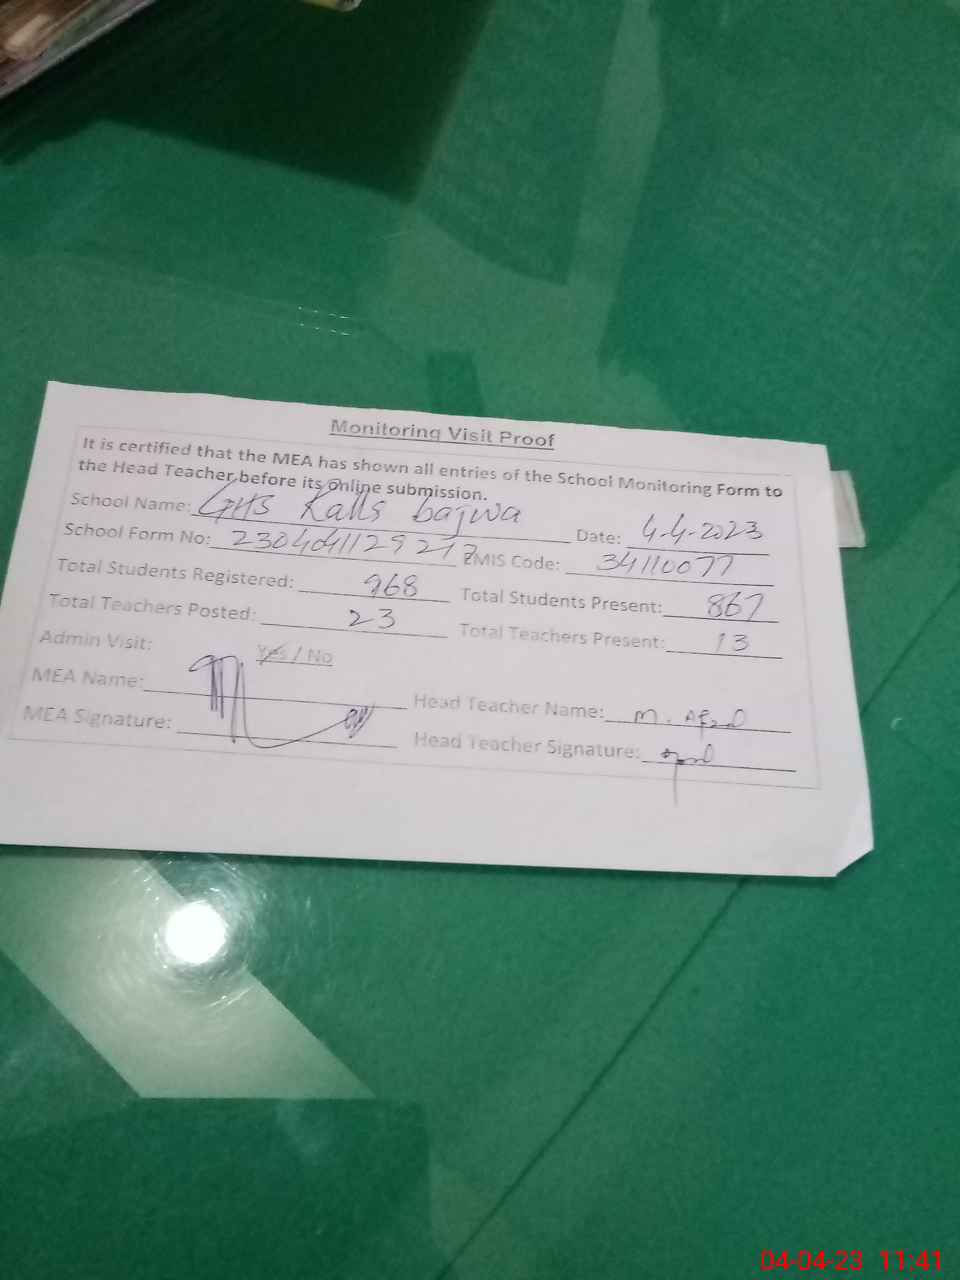 Monitoring Visit Proof
It is certified that the MEA has shown all entries of the School Monitoring Form to
the Head Teacher before its online submission.
School Name: GHS Kalls bajwa Date: 4-4-2023
School Form No: EMIS Code: 34110077
Total Students Registered: 968 Total Students Present: 867
Total Teachers Posted: 23 Total Teachers Present: 13
Admin Visit: Yes / No
MEA Name: Head Teacher Name: M. Afzal
MEA Signature: Head Teacher Signature:
04-04-23 11:41